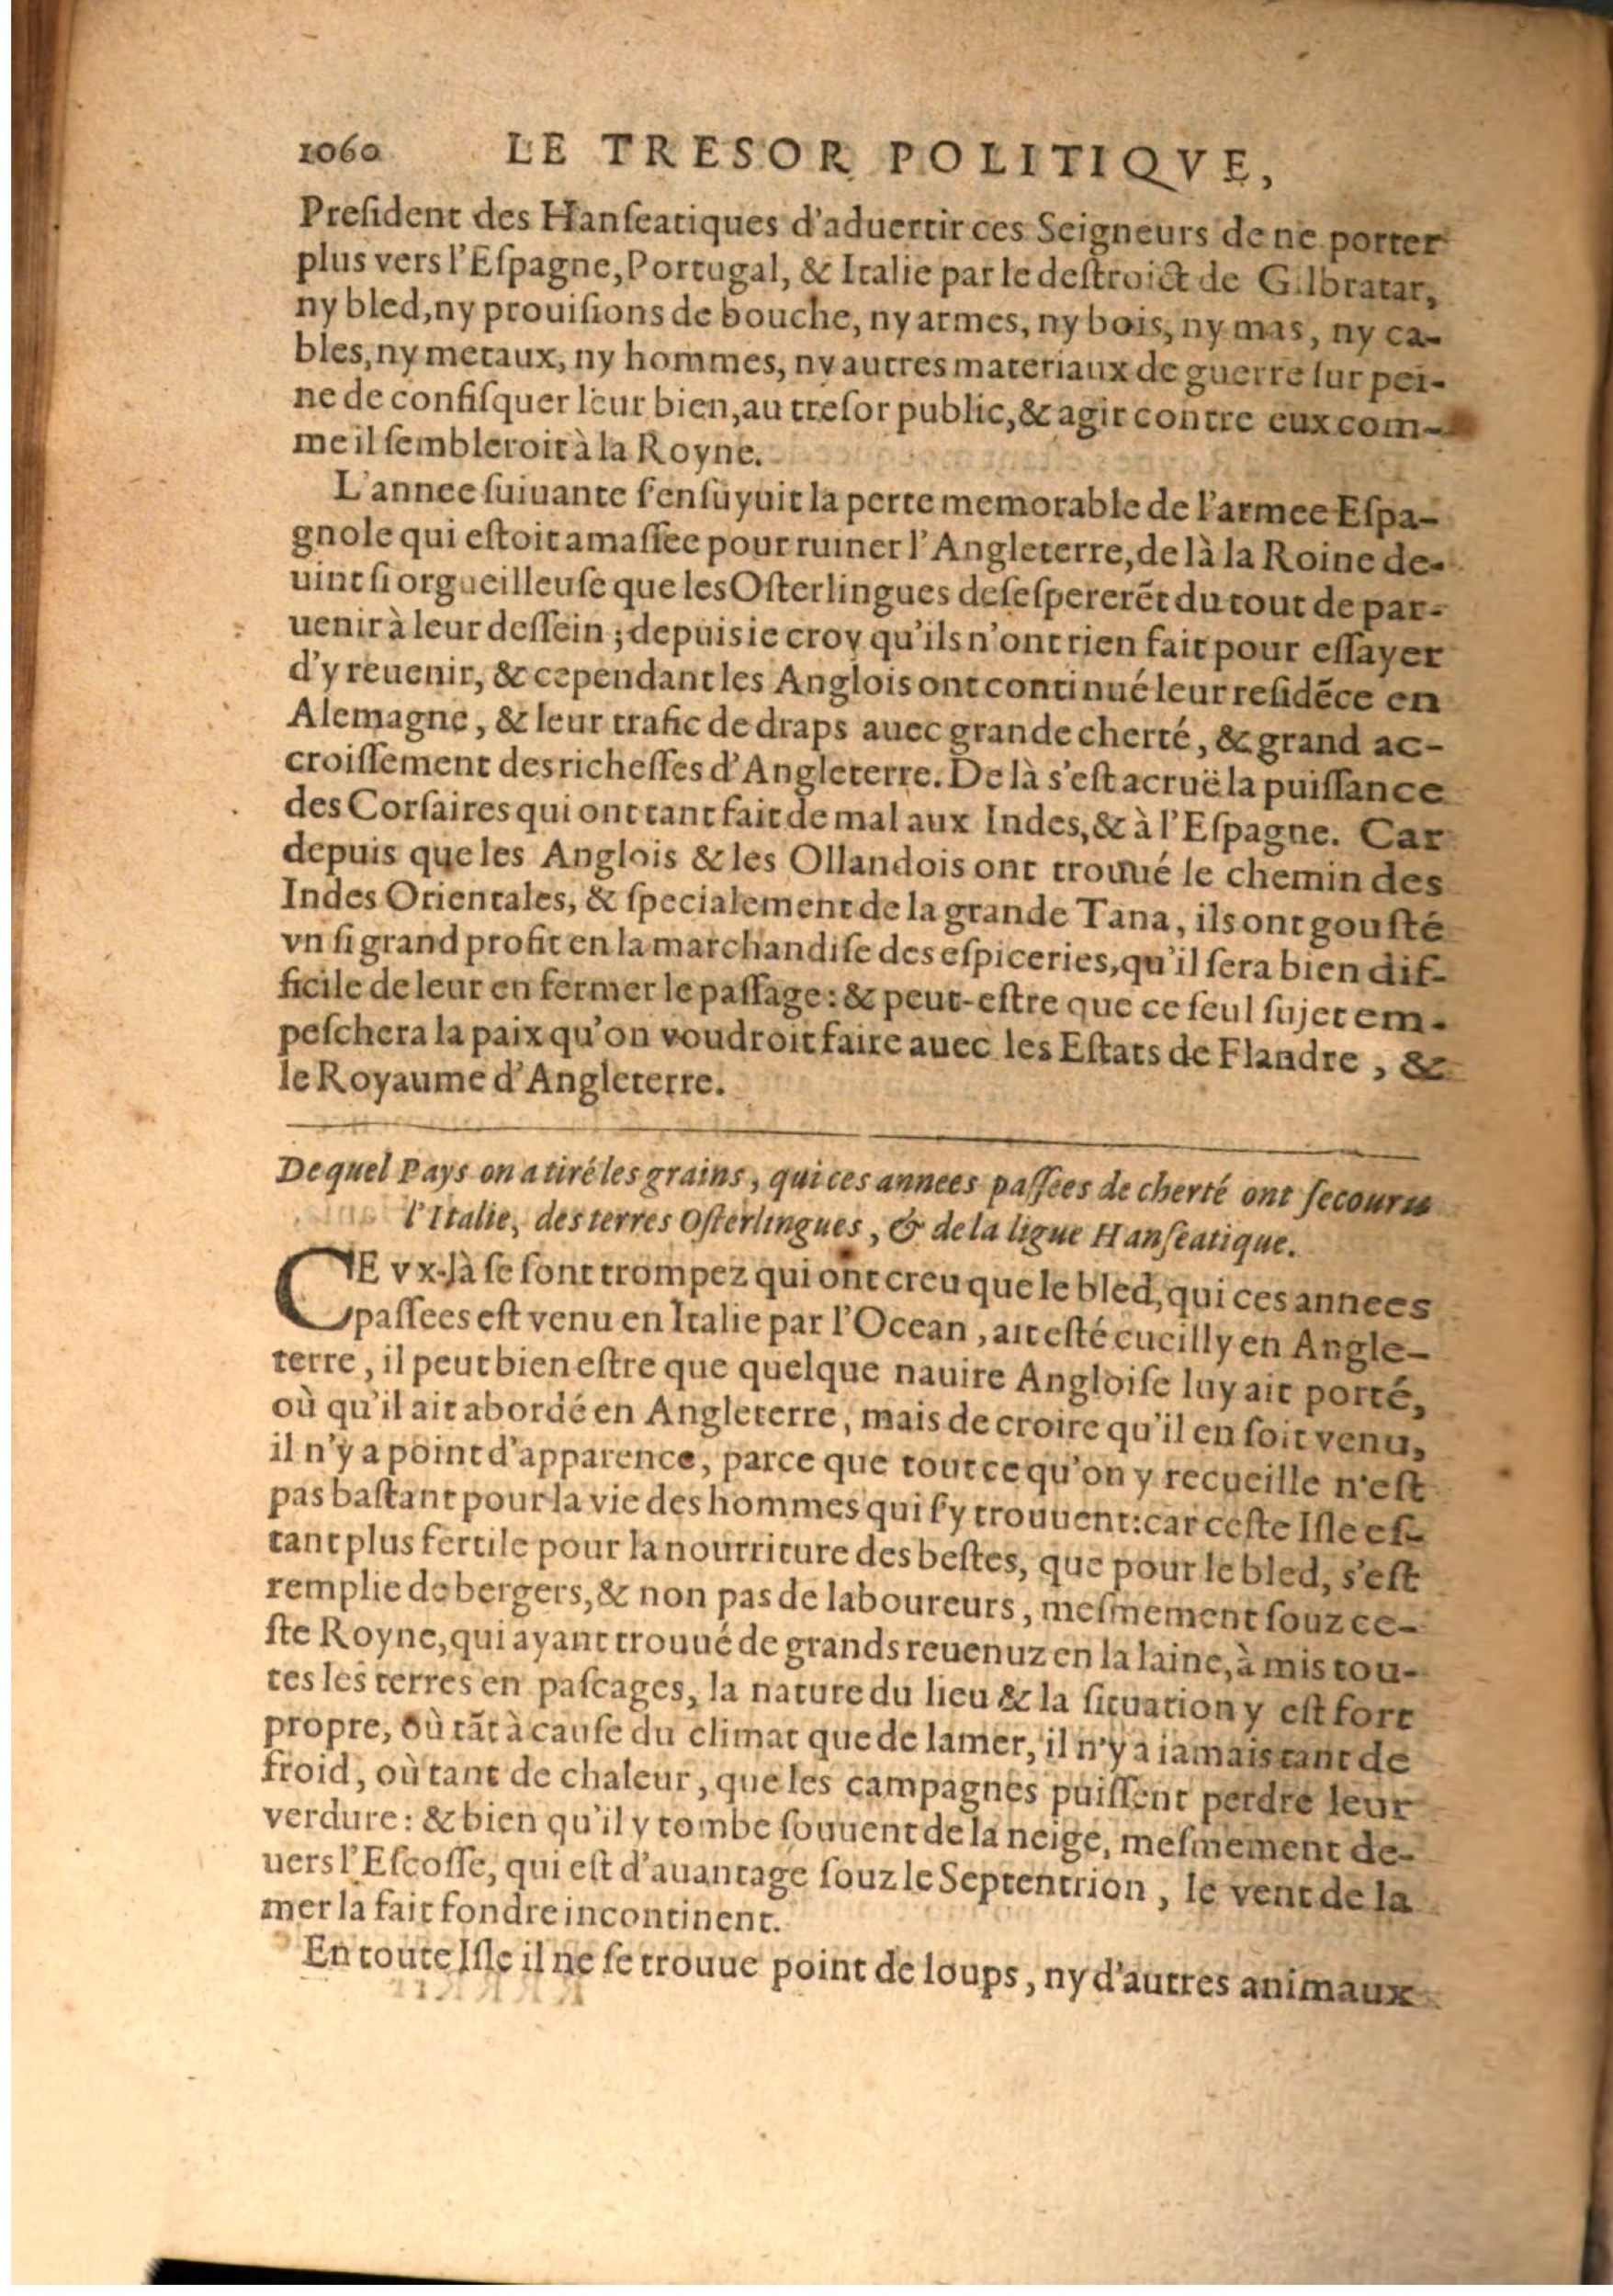 1060 LE TRESOR POLITIQVE,
Preſident des Hanſeatiques d'aduertir ces Seigneurs de ne porter
plus vers l'Eſpagne, Portugal, & Italie par le deſtroict de Gilbratar,
ny bled, ny prouiſions de bouche, ny armes, ny bois, ny mas, ny ca-
bles, ny metaux, ny hommes, ny autres materiaux de guerre ſur pei-
ne de confiſquer leur bien, au treſor public, & agir contre eux com-
me il ſembleroit à la Royne.
L'annee ſuiuante ſ'enſuyuit la perte memorable de l'armee Eſpa-
gnole qui eſtoit amaſſee pour ruiner l'Angleterre, de là la Roine de-
uint ſi orgueilleuſe que les Oſterlingues deſeſpererẽt du tout de par-
uenir à leur deſſein ; depuis ie croy qu'ils n'ont rien fait pour eſſayer
d'y reuenir, & cependant les Anglois ont continué leur reſidẽce en
Alemagne, & leur trafic de draps auec grande cherté, & grand ac-
croiſſement des richeſſes d'Angleterre. De là s'eſt acruë la puiſſance
des Corſaires qui ont tant fait de mal aux Indes, & à l'Eſpagne. Car
depuis que les Anglois & les Ollandois ont trouué le chemin des
Indes Orientales, & ſpecialement de la grande Tana, ils ont gouſté
vn ſi grand profit en la marchandiſe des eſpiceries, qu'il ſera bien dif-
ficile de leur en fermer le paſſage : & peut-eſtre que ce ſeul ſujet em-
peſchera la paix qu'on voudroit faire auec les Eſtats de Flandre, &
le Royaume d'Angleterre.
De quel Pays on a tiré les grains, qui ces annees paſſees de cherté ont ſecouru
l'Italie, des terres Oſterlingues, & de la ligue Hanſeatique.
CEvx-là se ſont trompez qui ont creu que le bled, qui ces annees
paſſees eſt venu en Italie par l'Ocean, ait eſté cueilly en Angle-
terre, il peut bien eſtre que quelque nauire Angloiſe luy ait porté,
où qu'il ait abordé en Angleterre, mais de croire qu'il en ſoit venu,
il n'y a point d'apparence, parce que tout ce qu'on y recueille n'eſt
pas baſtant pour la vie des hommes qui ſ'y trouuent : car ceſte Iſle eſ-
tant plus fertile pour la nourriture des beſtes, que pour le bled, s'eſt
remplie de bergers, & non pas de laboureurs, meſmement ſouz ce-
ſte Royne, qui ayant trouué de grands reuenuz en la laine, à mis tou-
tes les terres en paſcages, la nature du lieu & la ſituation y eſt fort
propre, où tãt à cauſe du climat que de la mer, il n'y a iamais tant de
froid, où tant de chaleur, que les campagnes puiſſent perdre leur
verdure : & bien qu'il y tombe ſouuent de la neige, meſmement de-
uers l'Eſcoſſe, qui eſt d'auantage ſouz le Septentrion, le vent de la
mer la fait fondre incontinent.
En toute Iſle il ne ſe trouue point de loups, ny d'autres animaux